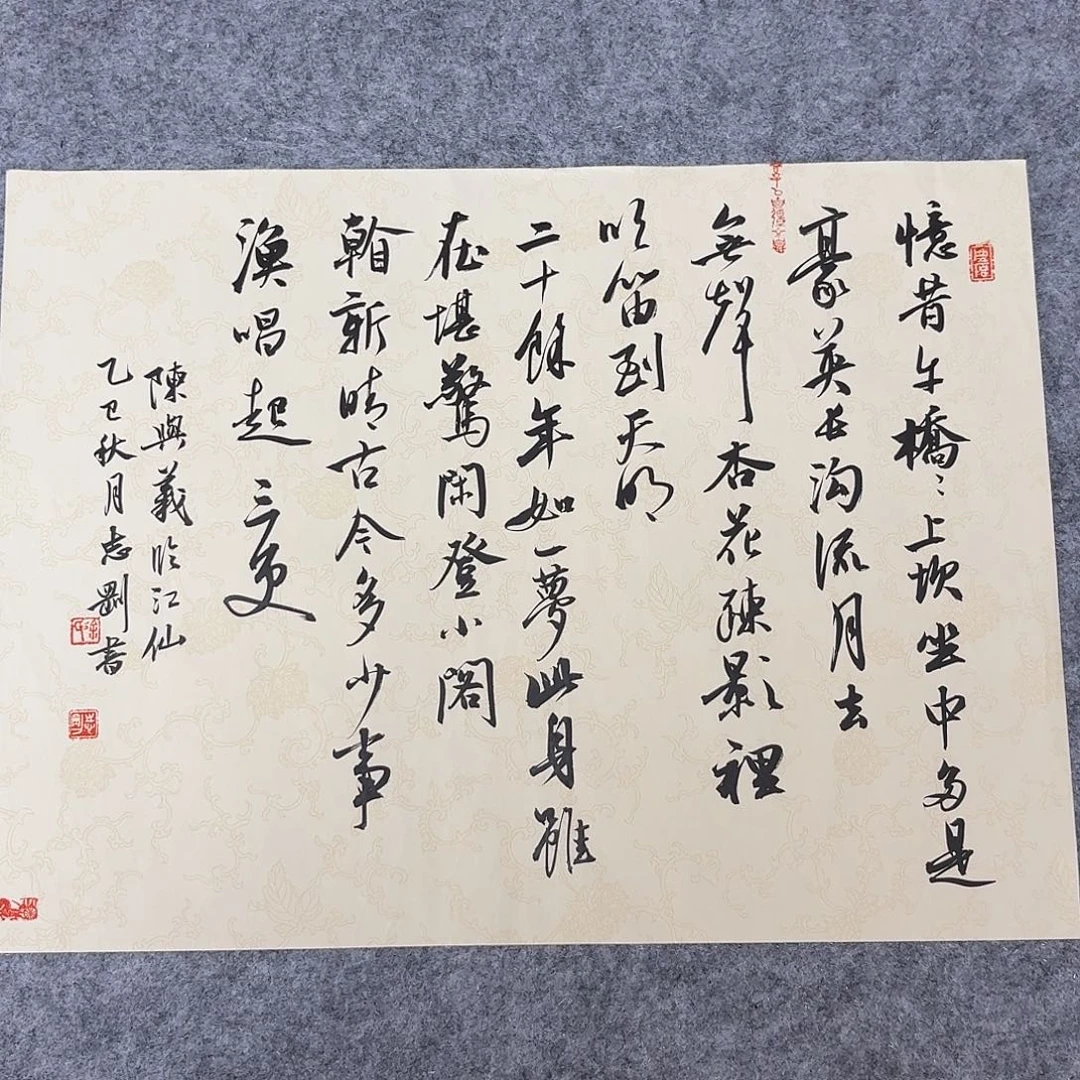 憶昔午橋〻上飲坐中多是
豪英長沟流月去
無聲杏花疎影裡
吹笛到天明
二十餘年如一夢此身雖
在堪驚閑登小閣
看新晴古今多少事
漁唱起三更
陳與義臨江仙
乙巳秋月志剛書